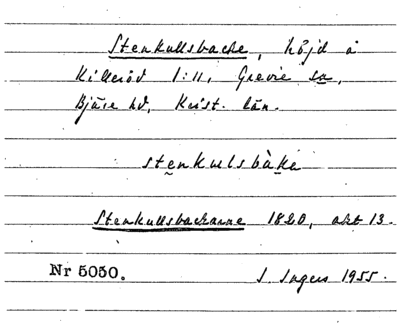 Stenkullsbacke, höjd å
Killeröd 1:11, Grevie sn,
Bjäre hd, Krist. län.
stenkulsbàka
Stenkullsbackarne 1820, akt 13.
Nr 5050.
S. Ingers 1955.